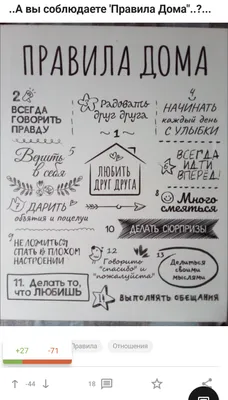 ..А вы соблюдаете 'Правила Дома"..?...
ПРАВИЛА ДОМА
2
ВСЕГДА
ГОВОРИТЬ
ПРАВДУ
3
Радовать
друг друга
4
НАЧИНАТЬ
каждый день
С УЛЫБКИ
1
ЛЮБИТЬ
ДРУГ ДРУГА
Верить 5
в себя
ВСЕГДА
ИДТИ
ВПЕРЕД!
ДАРИТЬ
объятия и поцелуи
8
Много
смеяться
9
НЕ ЛОЖИТЬСЯ
СПАТЬ В ПЛОХОМ
НАСТРОЕНИИ
10 ДЕЛАТЬ СЮРПРИЗЫ
11. Делать то,
что ЛЮБИШЬ
12
Говорить
"спасибо" и
"пожалуйста"
13
Делиться
своими
мыслями
14 ВЫПОЛНЯТЬ ОБЕЩАНИЯ
+27 -71
Правила Отношения
-44 18